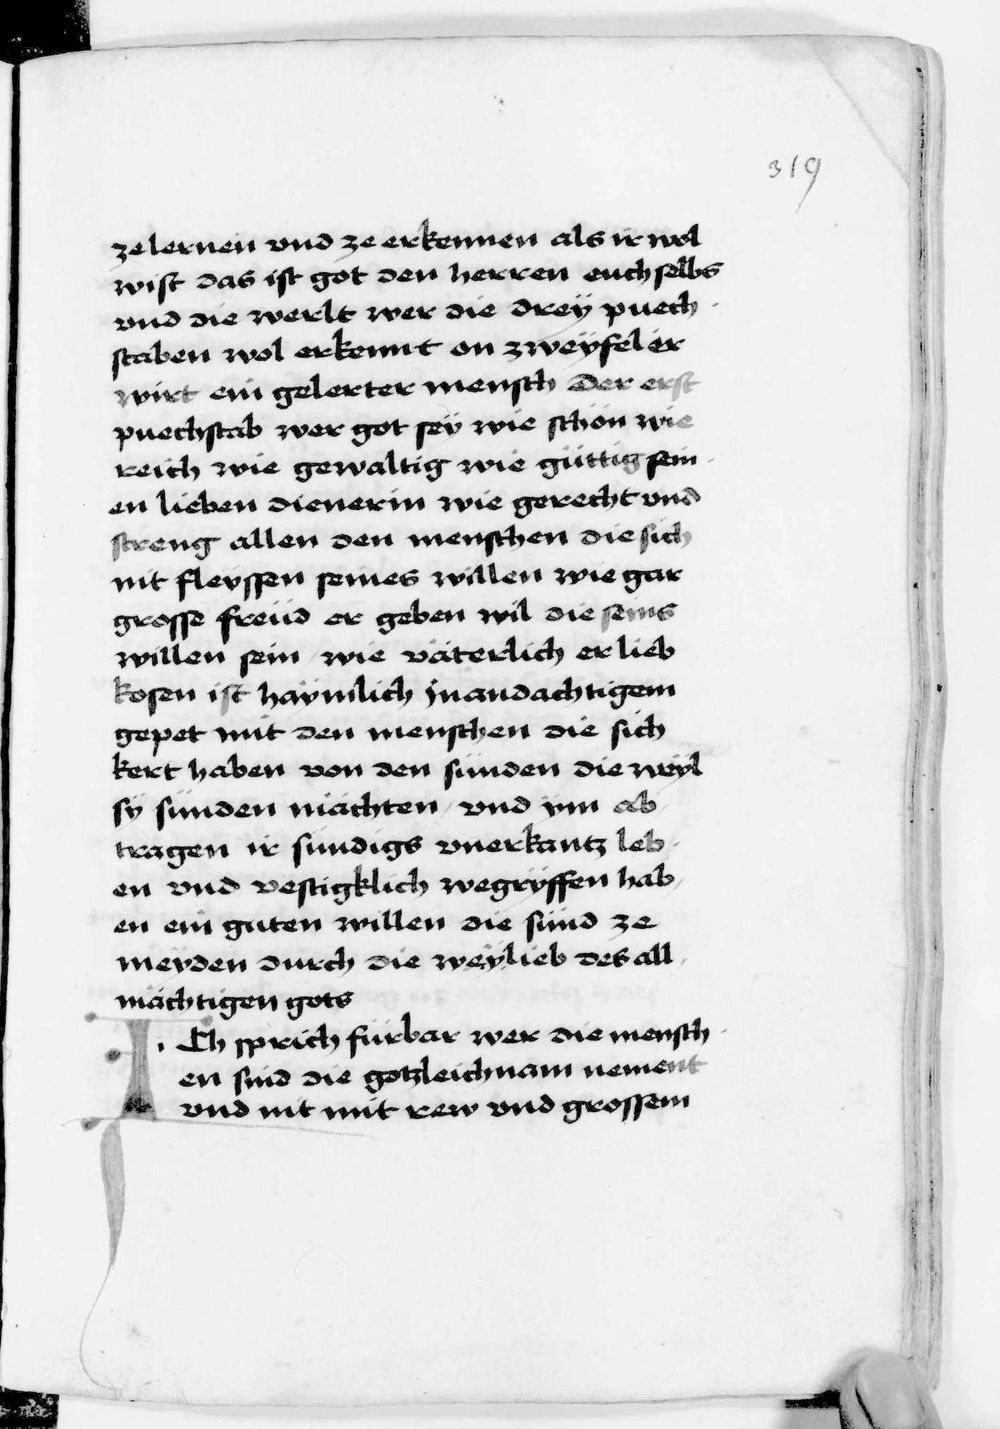 319
ze lernen vnd ze erkennen als ir wol
wist das ist got den herren euch selbs
vnd die werlt wer die dreÿ puech
staben wol erkennt on zweÿfel er
wirt ein gelerter mensch Der erst
puechstab wer got seÿ wie schön wie
reich wie gewaltig wie güttig sein
en lieben dienerin wie gerecht vnd
streng allen den menschen die sich
nit fleyssen seines willen wie gar
grosse freüd er geben wil die seins
willen sein / wie väterlich er lieb
kosen ist haÿmlich jn andachtigem
gepet mit den menschen die sich
kert haben von den sünden die weÿl
sÿ sünden mächten / vnd ÿm ab
tragen ir sündigs vnerkantz leb
en vnd vestigklich wegrÿffen hab
en ein guten willen die sünd ze
meyden durch die weÿ lieb des all
mächtigen gots
ICh sprich fürbar wer die mensch
en sind die gotzleichnam nement
vnd nit mit rew vnd grossem